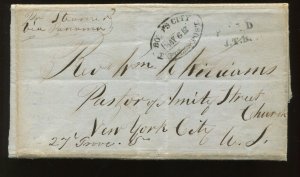 Per Steamer
via Panama
CITY
PAID
J.T.R.
Rev Wm Williams
Pastor of Amity Street
Church
New York City
U.S.
27 Grove